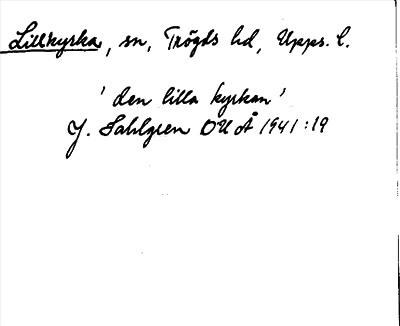 Lillkyrka, sn, Trögds hd, Upps. l.
'den lilla kyrkan'
J. Sahlgren OUÅ 1941:19